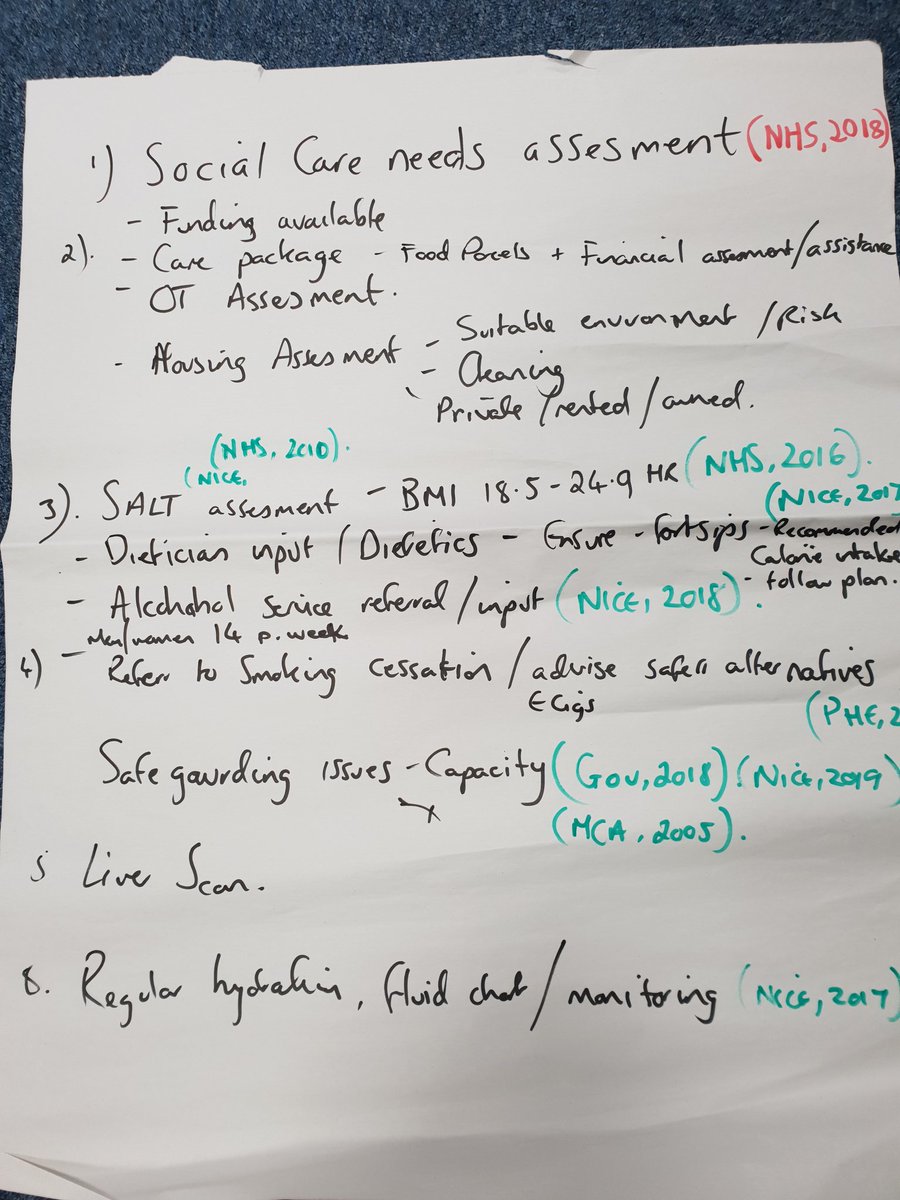 1) Social Care needs assesment (NHS, 2018)
- Funding available
2). - Care package - Food Parcels + Financial assesment/assistance
- OT Assesment.
- Housing Assesment - Suitable environment / Risk
- Cleaning
Private / rented / owned.
(NHS, 2010).
(NICE,
3). SALT assesment - BMI 18.5-24.9 (NHS, 2016).
(NICE, 2017
- Dietician input / Dietetics - Ensure - fortsips - Recommended
Calorie intake
- follow plan.
- Alcohahol service referral / input (NICE, 2018).
Men/women 14 p. week
4) - Referr to Smoking cessation / advise safer alternatives
E Cigs
(PHE, 2
Safe gaurding issues - Capacity (Gov, 2018) (NICE, 2019)
(MCA, 2005).
5 Liver Scan.
8. Regular hydration, fluid chart / monitoring (NICE, 2017)